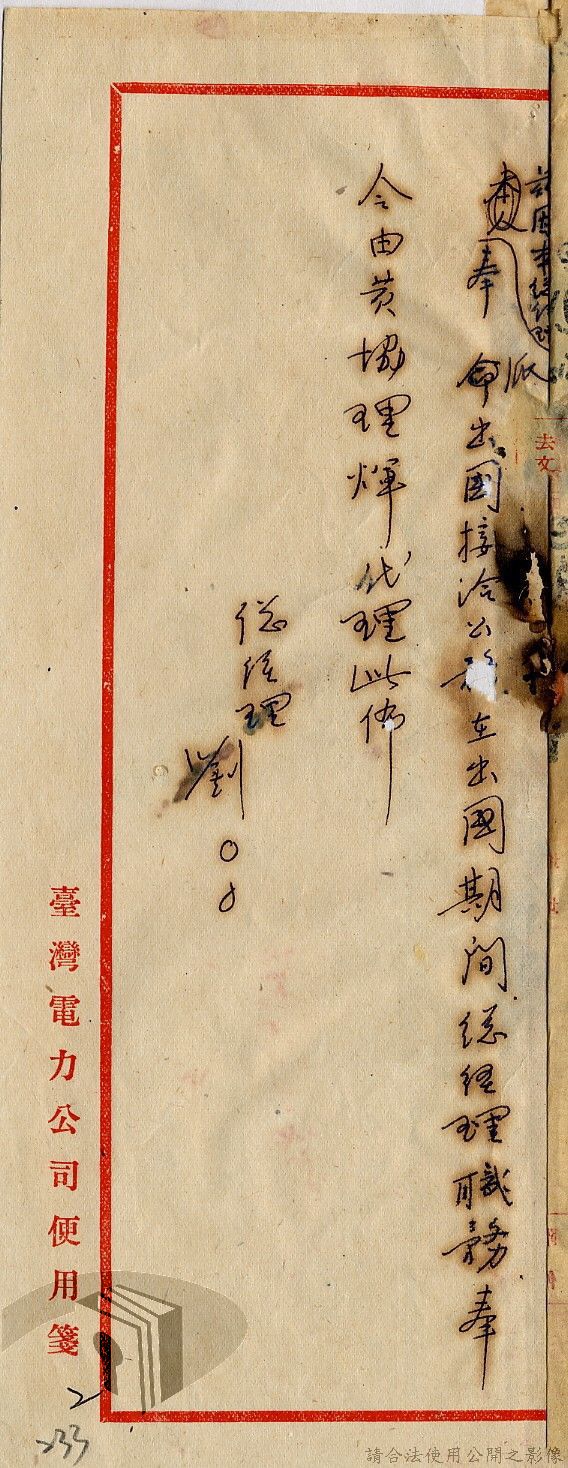 茲因本總經理
奉派
命出國接洽公務在出國期間總經理職務奉
令由黃協理煇代理此佈
總經理
劉○○
臺灣電力公司便用箋
去文
2
233
請合法使用公開之影像